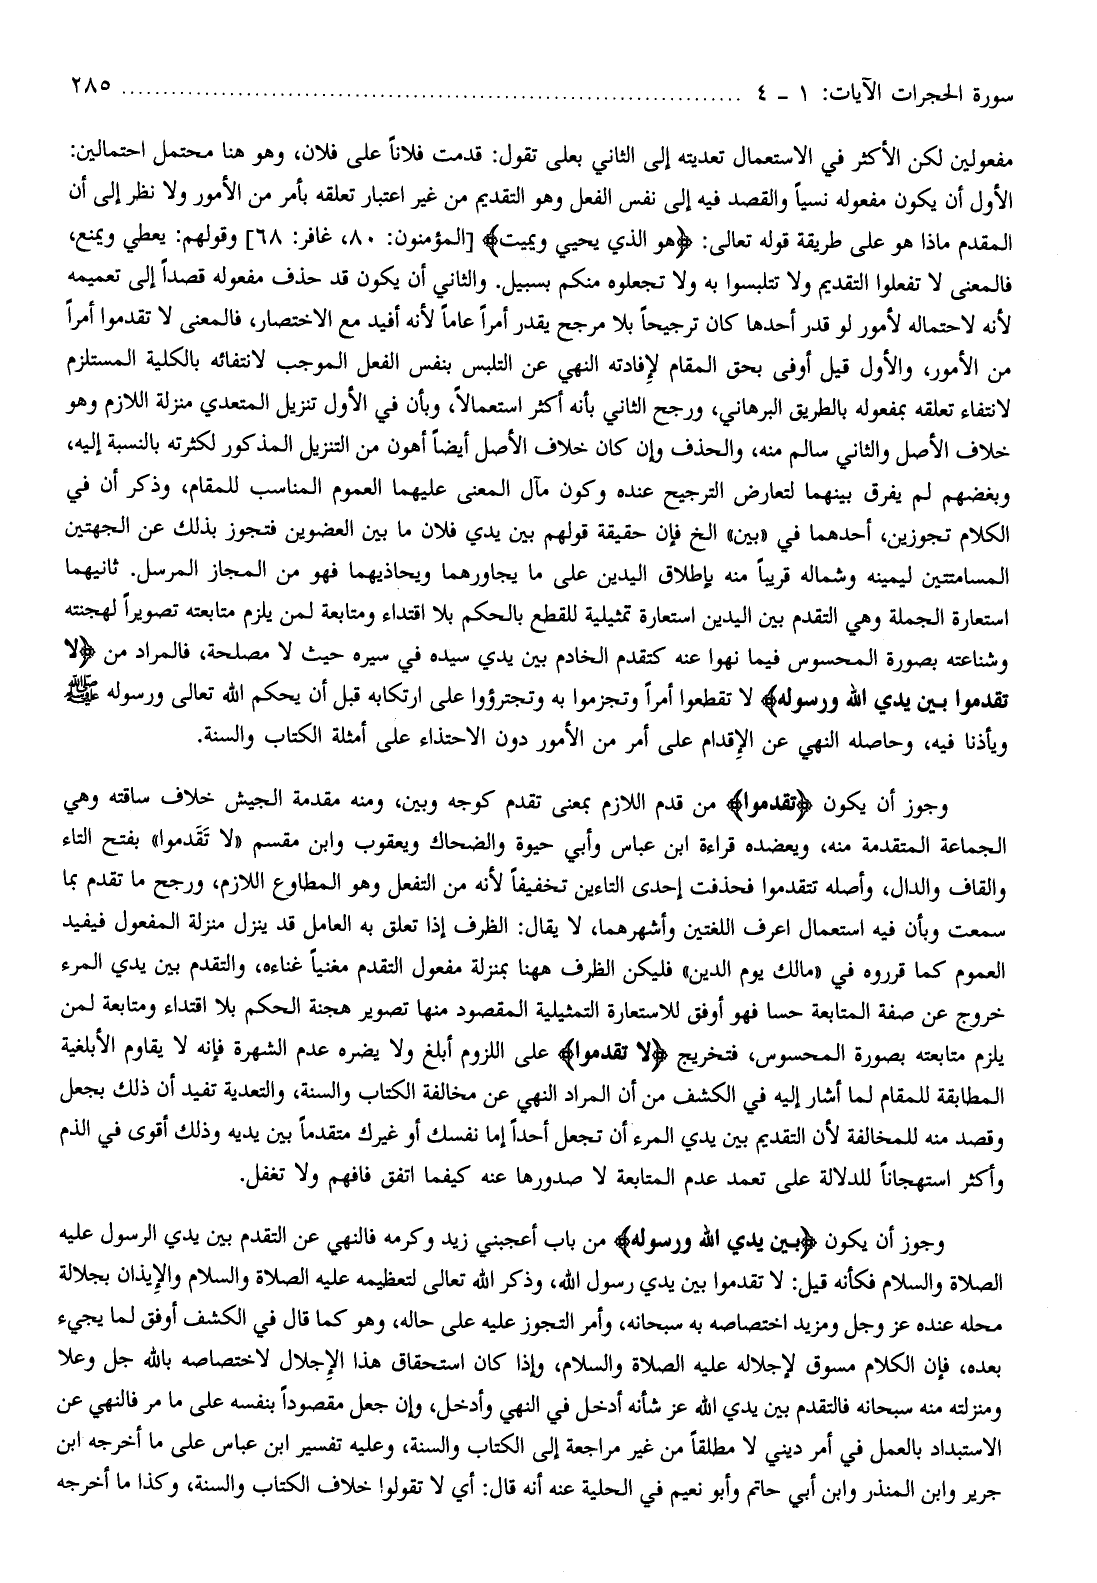 سورة الحجرات الآيات: ١ - ٤ ........................................................................... ٢٨٥
مفعولين لكن الأكثر في الاستعمال تعديته إلى الثاني بعلى تقول: قدمت فلاناً على فلان، وهو هنا محتمل احتمالين:
الأول أن يكون مفعوله نسياً والقصد فيه إلى نفس الفعل وهو التقديم من غير اعتبار تعلقه بأمر من الأمور ولا نظر إلى أن
المقدم ماذا هو على طريقة قوله تعالى: ﴿هو الذي يحيي ويميت﴾ [المؤمنون: ٨٠، غافر: ٦٨] وقولهم: يعطي ويمنع،
فالمعنى لا تفعلوا التقديم ولا تتلبسوا به ولا تجعلوه منكم بسبيل. والثاني أن يكون قد حذف مفعوله قصداً إلى تعميمه
لأنه لاحتماله لأمور لو قدر أحدها كان ترجيحاً بلا مرجح يقدر أمراً عاماً لأنه أفيد مع الاختصار، فالمعنى لا تقدموا أمراً
من الأمور، والأول قيل أوفى بحق المقام لإفادته النهي عن التلبس بنفس الفعل الموجب لانتفائه بالكلية المستلزم
لانتفاء تعلقه بمفعوله بالطريق البرهاني، ورجح الثاني بأنه أكثر استعمالاً، وبأن في الأول تنزيل المتعدي منزلة اللازم وهو
خلاف الأصل والثاني سالم منه، والحذف وإن كان خلاف الأصل أيضاً أهون من التنزيل المذكور لكثرته بالنسبة إليه،
وبغضهم لم يفرق بينهما لتعارض الترجيح عنده وكون مآل المعنى عليهما العموم المناسب للمقام، وذكر أن في
الكلام تجوزين، أحدهما في «بين» الخ فإن حقيقة قولهم بين يدي فلان ما بين العضوين فتجوز بذلك عن الجهتين
المسامتتين ليمينه وشماله قريباً منه بإطلاق اليدين على ما يجاورهما ويحاذيهما فهو من المجاز المرسل. ثانيهما
استعارة الجملة وهي التقدم بين اليدين استعارة تمثيلية للقطع بالحكم بلا اقتداء ومتابعة لمن يلزم متابعته تصويراً لهجنته
وشناعته بصورة المحسوس فيما نهوا عنه كتقدم الخادم بين يدي سيده في سيره حيث لا مصلحة، فالمراد من ﴿لا
تقدموا بين يدي الله ورسوله﴾ لا تقطعوا أمراً وتجزموا به وتجترؤوا على ارتكابه قبل أن يحكم الله تعالى ورسوله ﷺ
ويأذنا فيه، وحاصله النهي عن الإقدام على أمر من الأمور دون الاحتذاء على أمثلة الكتاب والسنة.
وجوز أن يكون ﴿تقدموا﴾ من قدم اللازم بمعنى تقدم كوجه وبين، ومنه مقدمة الجيش خلاف ساقته وهي
الجماعة المتقدمة منه، ويعضده قراءة ابن عباس وأبي حيوة والضحاك ويعقوب وابن مقسم «لا تَقَدموا» بفتح التاء
والقاف والدال، وأصله تتقدموا فحذفت إحدى التاءين تخفيفاً لأنه من التفعل وهو المطاوع اللازم، ورجح ما تقدم بما
سمعت وبأن فيه استعمال اعرف اللغتين وأشهرهما، لا يقال: الظرف إذا تعلق به العامل قد ينزل منزلة المفعول فيفيد
العموم كما قرروه في «مالك يوم الدين» فليكن الظرف ههنا بمنزلة مفعول التقدم مغنياً غناءه، والتقدم بين يدي المرء
خروج عن صفة المتابعة حسا فهو أوفق للاستعارة التمثيلية المقصود منها تصوير هجنة الحكم بلا اقتداء ومتابعة لمن
يلزم متابعته بصورة المحسوس، فتخريج ﴿لا تقدموا﴾ على اللزوم أبلغ ولا يضره عدم الشهرة فإنه لا يقاوم الأبلغية
المطابقة للمقام لما أشار إليه في الكشف من أن المراد النهي عن مخالفة الكتاب والسنة، والتعدية تفيد أن ذلك بجعل
وقصد منه للمخالفة لأن التقديم بين يدي المرء أن تجعل أحداً إما نفسك أو غيرك متقدماً بين يديه وذلك أقوى في الذم
وأكثر استهجاناً للدلالة على تعمد عدم المتابعة لا صدورها عنه كيفما اتفق فافهم ولا تغفل.
وجوز أن يكون ﴿بين يدي الله ورسوله﴾ من باب أعجبني زيد وكرمه فالنهي عن التقدم بين يدي الرسول عليه
الصلاة والسلام فكأنه قيل: لا تقدموا بين يدي رسول الله، وذكر الله تعالى لتعظيمه عليه الصلاة والسلام والإيذان بجلالة
محله عنده عز وجل ومزيد اختصاصه به سبحانه، وأمر التجوز عليه على حاله، وهو كما قال في الكشف أوفق لما يجيء
بعده، فإن الكلام مسوق لإجلاله عليه الصلاة والسلام، وإذا كان استحقاق هذا الإجلال لاختصاصه بالله جل وعلا
ومنزلته منه سبحانه فالتقدم بين يدي الله عز شأنه أدخل في النهي وأدخل، وإن جعل مقصوداً بنفسه على ما مر فالنهي عن
الاستبداد بالعمل في أمر ديني لا مطلقاً من غير مراجعة إلى الكتاب والسنة، وعليه تفسير ابن عباس على ما أخرجه ابن
جرير وابن المنذر وابن أبي حاتم وأبو نعيم في الحلية عنه أنه قال: أي لا تقولوا خلاف الكتاب والسنة، وكذا ما أخرجه